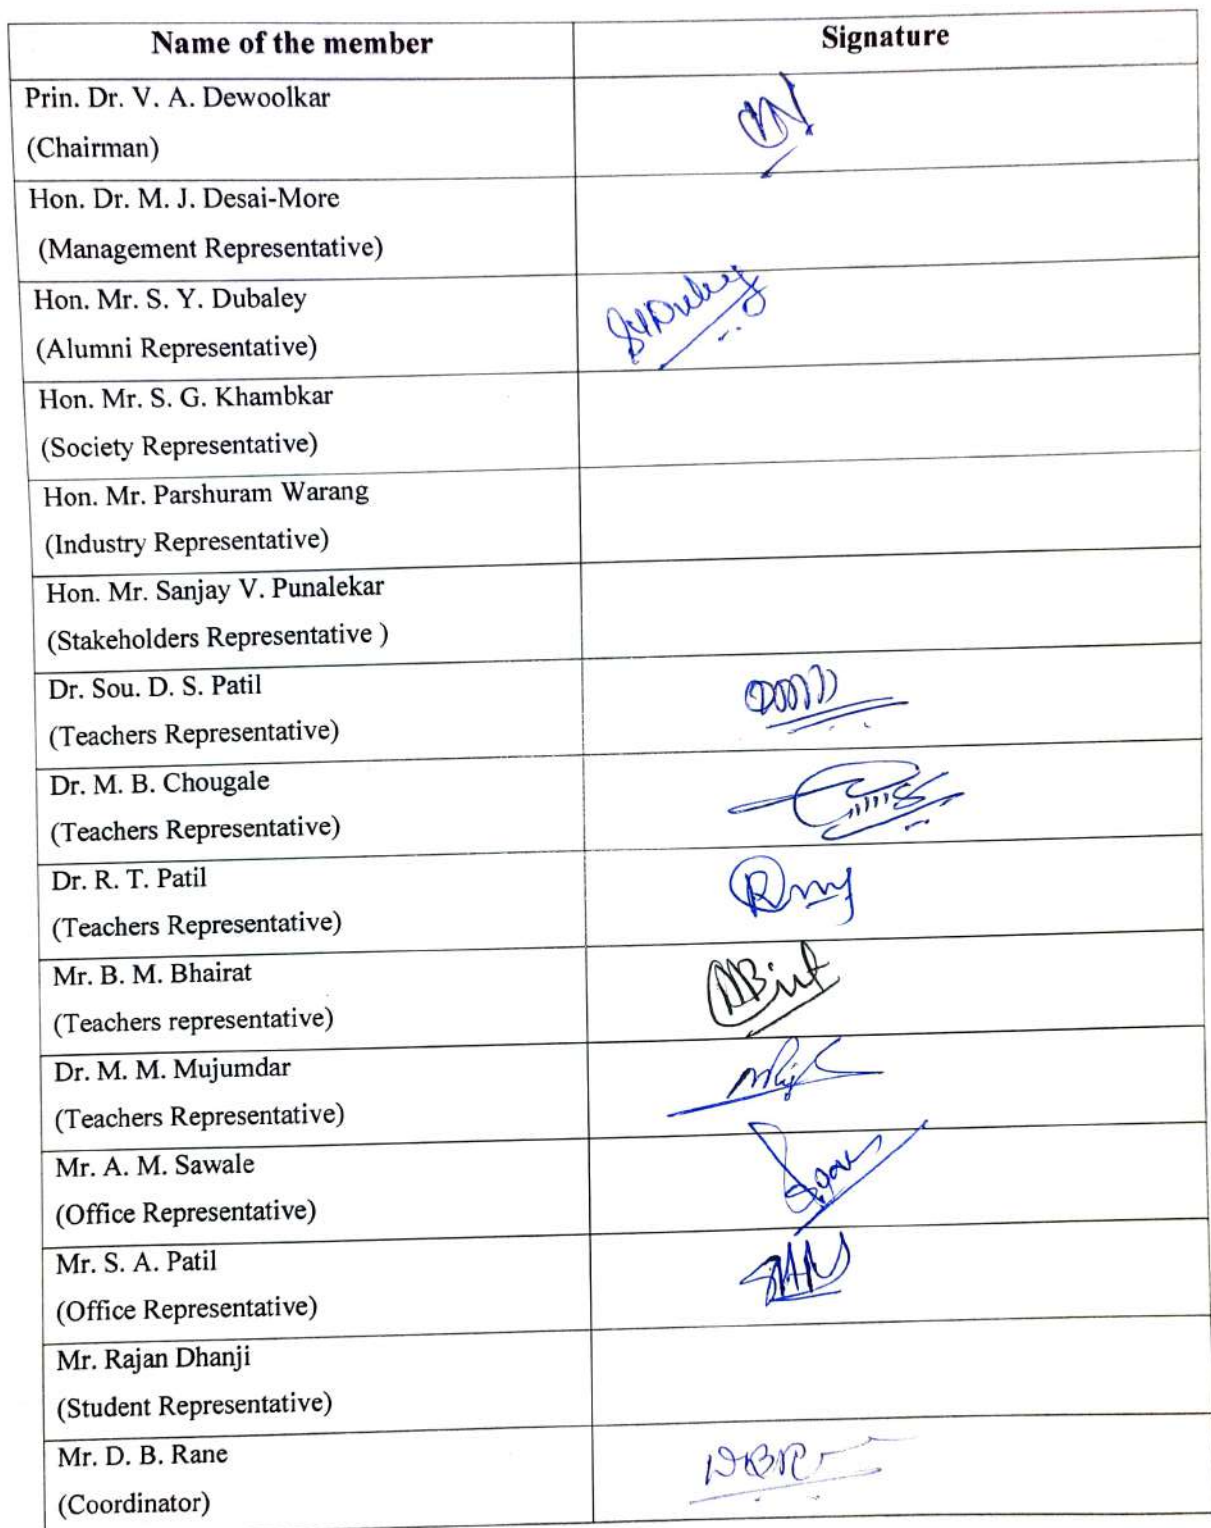 Name of the member Signature
Prin. Dr. V. A. Dewoolkar
(Chairman)
Hon. Dr. M. J. Desai-More
(Management Representative)
Hon. Mr. S. Y. Dubaley
(Alumni Representative)
SYDubaley
Hon. Mr. S. G. Khambkar
(Society Representative)
Hon. Mr. Parshuram Warang
(Industry Representative)
Hon. Mr. Sanjay V. Punalekar
(Stakeholders Representative )
Dr. Sou. D. S. Patil
(Teachers Representative)
Dr. M. B. Chougale
(Teachers Representative)
Dr. R. T. Patil
(Teachers Representative)
Mr. B. M. Bhairat
(Teachers representative)
Dr. M. M. Mujumdar
(Teachers Representative)
Mr. A. M. Sawale
(Office Representative)
Mr. S. A. Patil
(Office Representative)
Mr. Rajan Dhanji
(Student Representative)
Mr. D. B. Rane
(Coordinator)